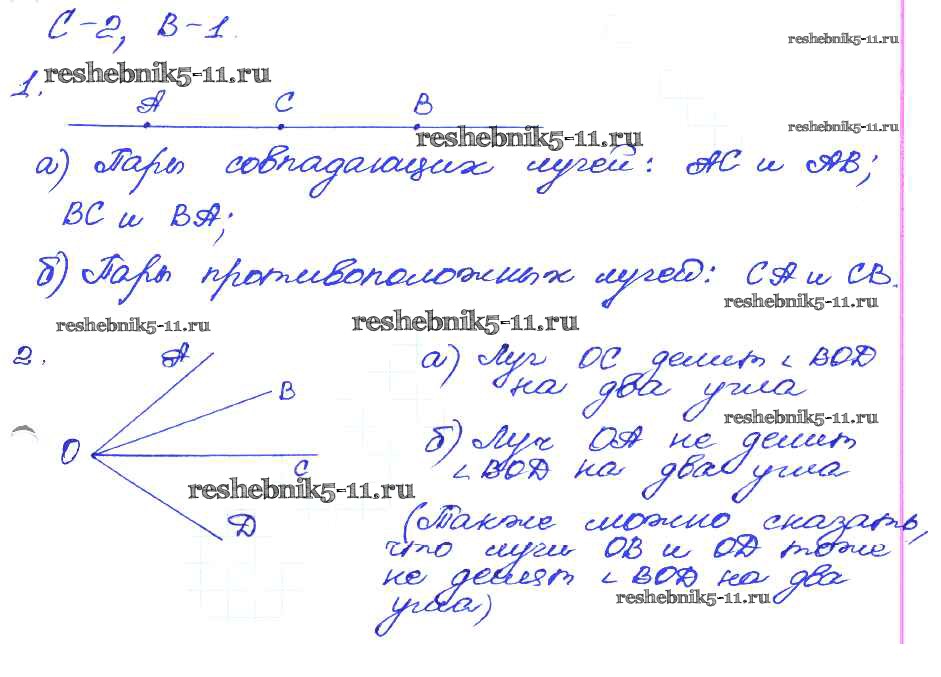 С-2, В-1.
reshebnik5-11.ru
reshebnik5-11.ru
1.
А С В
reshebnik5-11.ru
reshebnik5-11.ru
а) Пары совпадающих лучей: АС и АВ;
ВС и ВА;
б) Пары противоположных лучей: СА и СВ.
reshebnik5-11.ru
reshebnik5-11.ru
reshebnik5-11.ru
2.
А
В
О
С
reshebnik5-11.ru
D
а) Луч ОС делит ∠ BOD
на два угла
reshebnik5-11.ru
б) Луч ОА не делит
∠ BOD на два угла
(Также можно сказать,
что лучи ОВ и OD тоже
не делят ∠ BOD на два
угла)
reshebnik5-11.ru